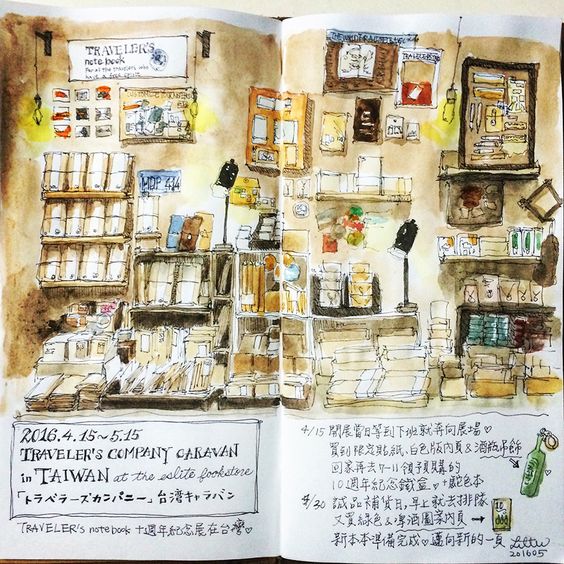 TRAVELER'S
notebook
For all the travelers who
have a free spirit
TRAVELER'S
MDP 414
2016.4.15~5.15
TRAVELER'S COMPANY CARAVAN
in TAIWAN at the eslite bookstore
「トラベラーズカンパニー」台湾キャラバン
TRAVELER'S notebook 十週年紀念展在台灣♡
4/15 開展當日等到下班就奔向展場♡
買到限定貼紙、白色版內頁&酒瓶吊飾
回家再去7-11領預購的
10週年紀念鐵盒♡+駝色本
4/30 誠品補貨日,早上就去排隊
又買綠色&啤酒圖案內頁→
新本本準備完成♡邁向新的一頁
201605